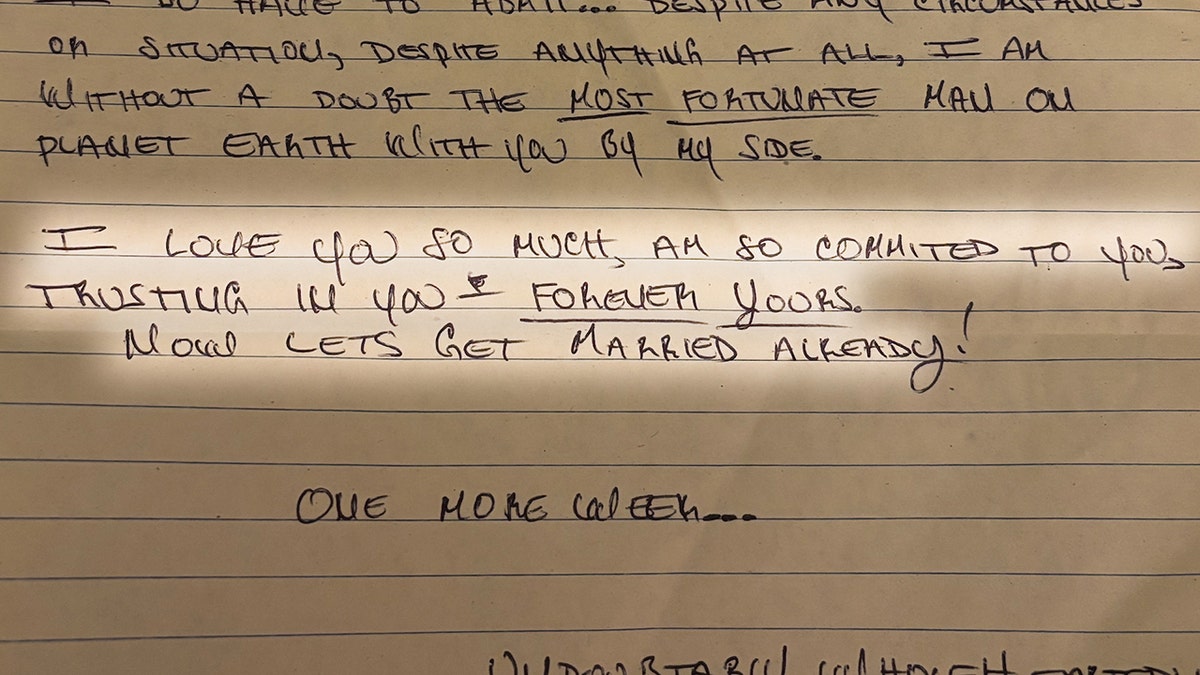 I DO HAVE TO ADMIT... DESPITE ANY CIRCUMSTANCES
OR SITUATION, DESPITE ANYTHING AT ALL, I AM
WITHOUT A DOUBT THE MOST FORTUNATE MAN ON
PLANET EARTH WITH YOU BY MY SIDE.
I LOVE YOU SO MUCH, AM SO COMMITED TO YOU,
TRUSTING IN YOU & FOREVER YOURS.
NOW LETS GET MARRIED ALREADY!
ONE MORE WEEK...